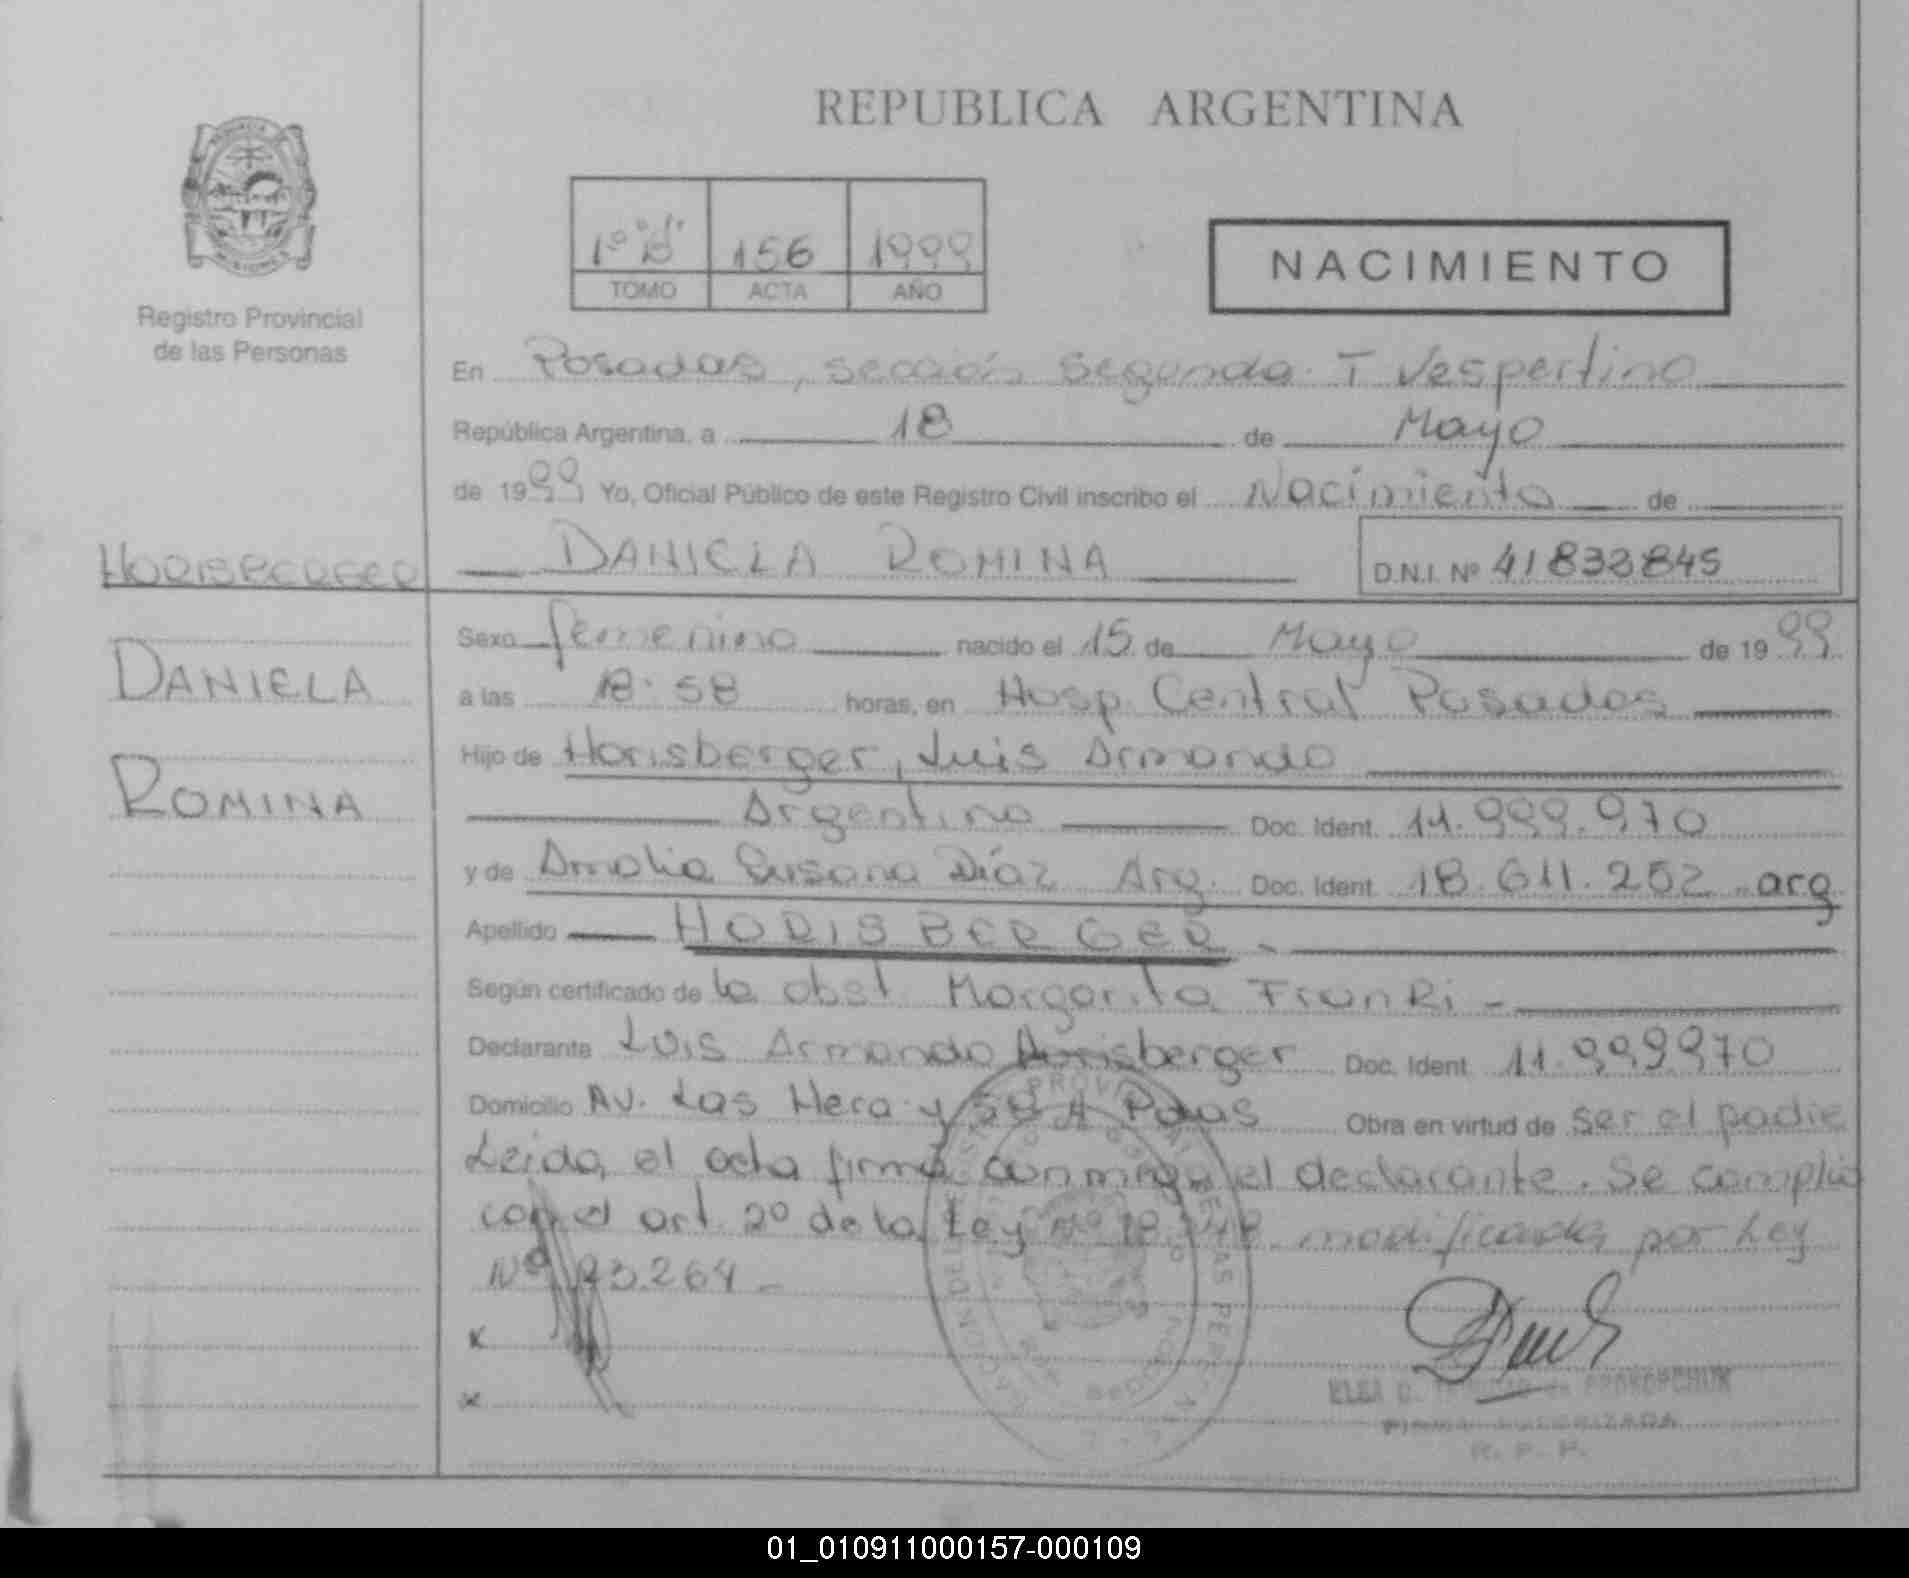 REPUBLICA ARGENTINA
MISIONES
Registro Provincial
de las Personas
1º "D" 156 1999
TOMO ACTA AÑO
NACIMIENTO
En Posadas, sección segunda T Vespertino
República Argentina, a 18 de Mayo
de 1999 Yo, Oficial Público de este Registro Civil inscribo el Nacimiento de
HORISBERGER DANIELA ROMINA D.N.I. Nº 41832845
DANIELA
ROMINA
Sexo femenino nacido el 15 de Mayo de 1999
a las 18:58 horas, en Hosp. Central Posadas
Hijo de Horisberger, Luis Armando
Argentino Doc. Ident. 11.999.970
y de Amalia Susana Díaz Arg. Doc. Ident. 18.611.252 arg
Apellido HORISBERGER -
Según certificado de la obst. Margarita Frunki -
Declarante Luis Armando Horisberger Doc. Ident. 11.999970
Domicilio Av. Las Hera y Pdas Obra en virtud de ser el padre
Leida, el acta firma conmigo el declarante. Se cumplio
con el art. 2º de la Ley Nº 18.248 modificada por Ley
Nº 23.264 -
x
x
ELSA D. de PROKOPCHUK
FIRMA AUTORIZADA
R. P. P.
01_010911000157-000109